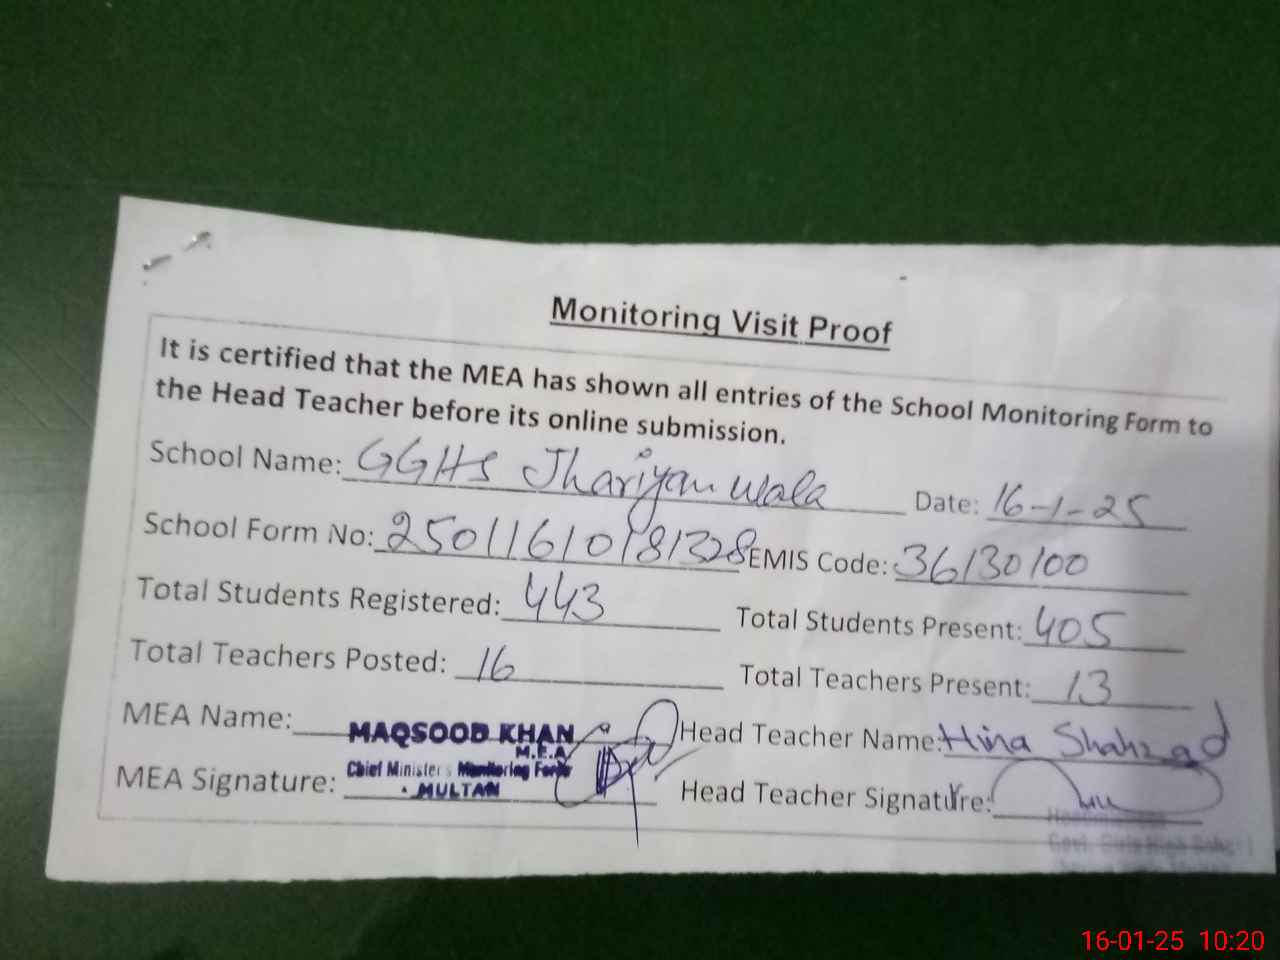 Monitoring Visit Proof
It is certified that the MEA has shown all entries of the School Monitoring Form to
the Head Teacher before its online submission.
School Name: GGHS Jhariyan wala Date: 16-1-25
School Form No: 25011610181328 EMIS Code: 36130100
Total Students Registered: 443 Total Students Present: 405
Total Teachers Posted: 16 Total Teachers Present: 13
MEA Name: MAQSOOD KHAN Head Teacher Name: Hina Shahzad
M.E.A
MEA Signature: Chief Minister's Monitoring Force Head Teacher Signature:
MULTAN
Govt. Girls High School
16-01-25 10:20